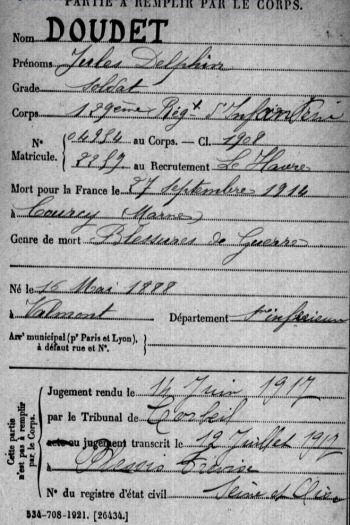 PARTIE A REMPLIR PAR LE CORPS.
Nom DOUDET
Prénoms Jules Delphin
Grade Soldat
Corps 129ème Régt d'Infanterie
N° Matricule. { 04354 au Corps. — Cl. 1908
au Recrutement Le Havre
Mort pour la France le 27 septembre 1914
à Courcy (Marne)
Genre de mort Blessures de Guerre
Né le 16 Mai 1888
à Valmont Département Sne inférieure
Arrt municipal (pr Paris et Lyon), à défaut rue et N°.
Cette partie n'est pas à remplir par le Corps.
Jugement rendu le 14 Juin 1917
par le Tribunal de Corbeil
acte ou jugement transcrit le 12 Juillet 1917
à Plessis Trévise
Seine et Oise
N° du registre d'état civil
534-708-1921. [26434.]